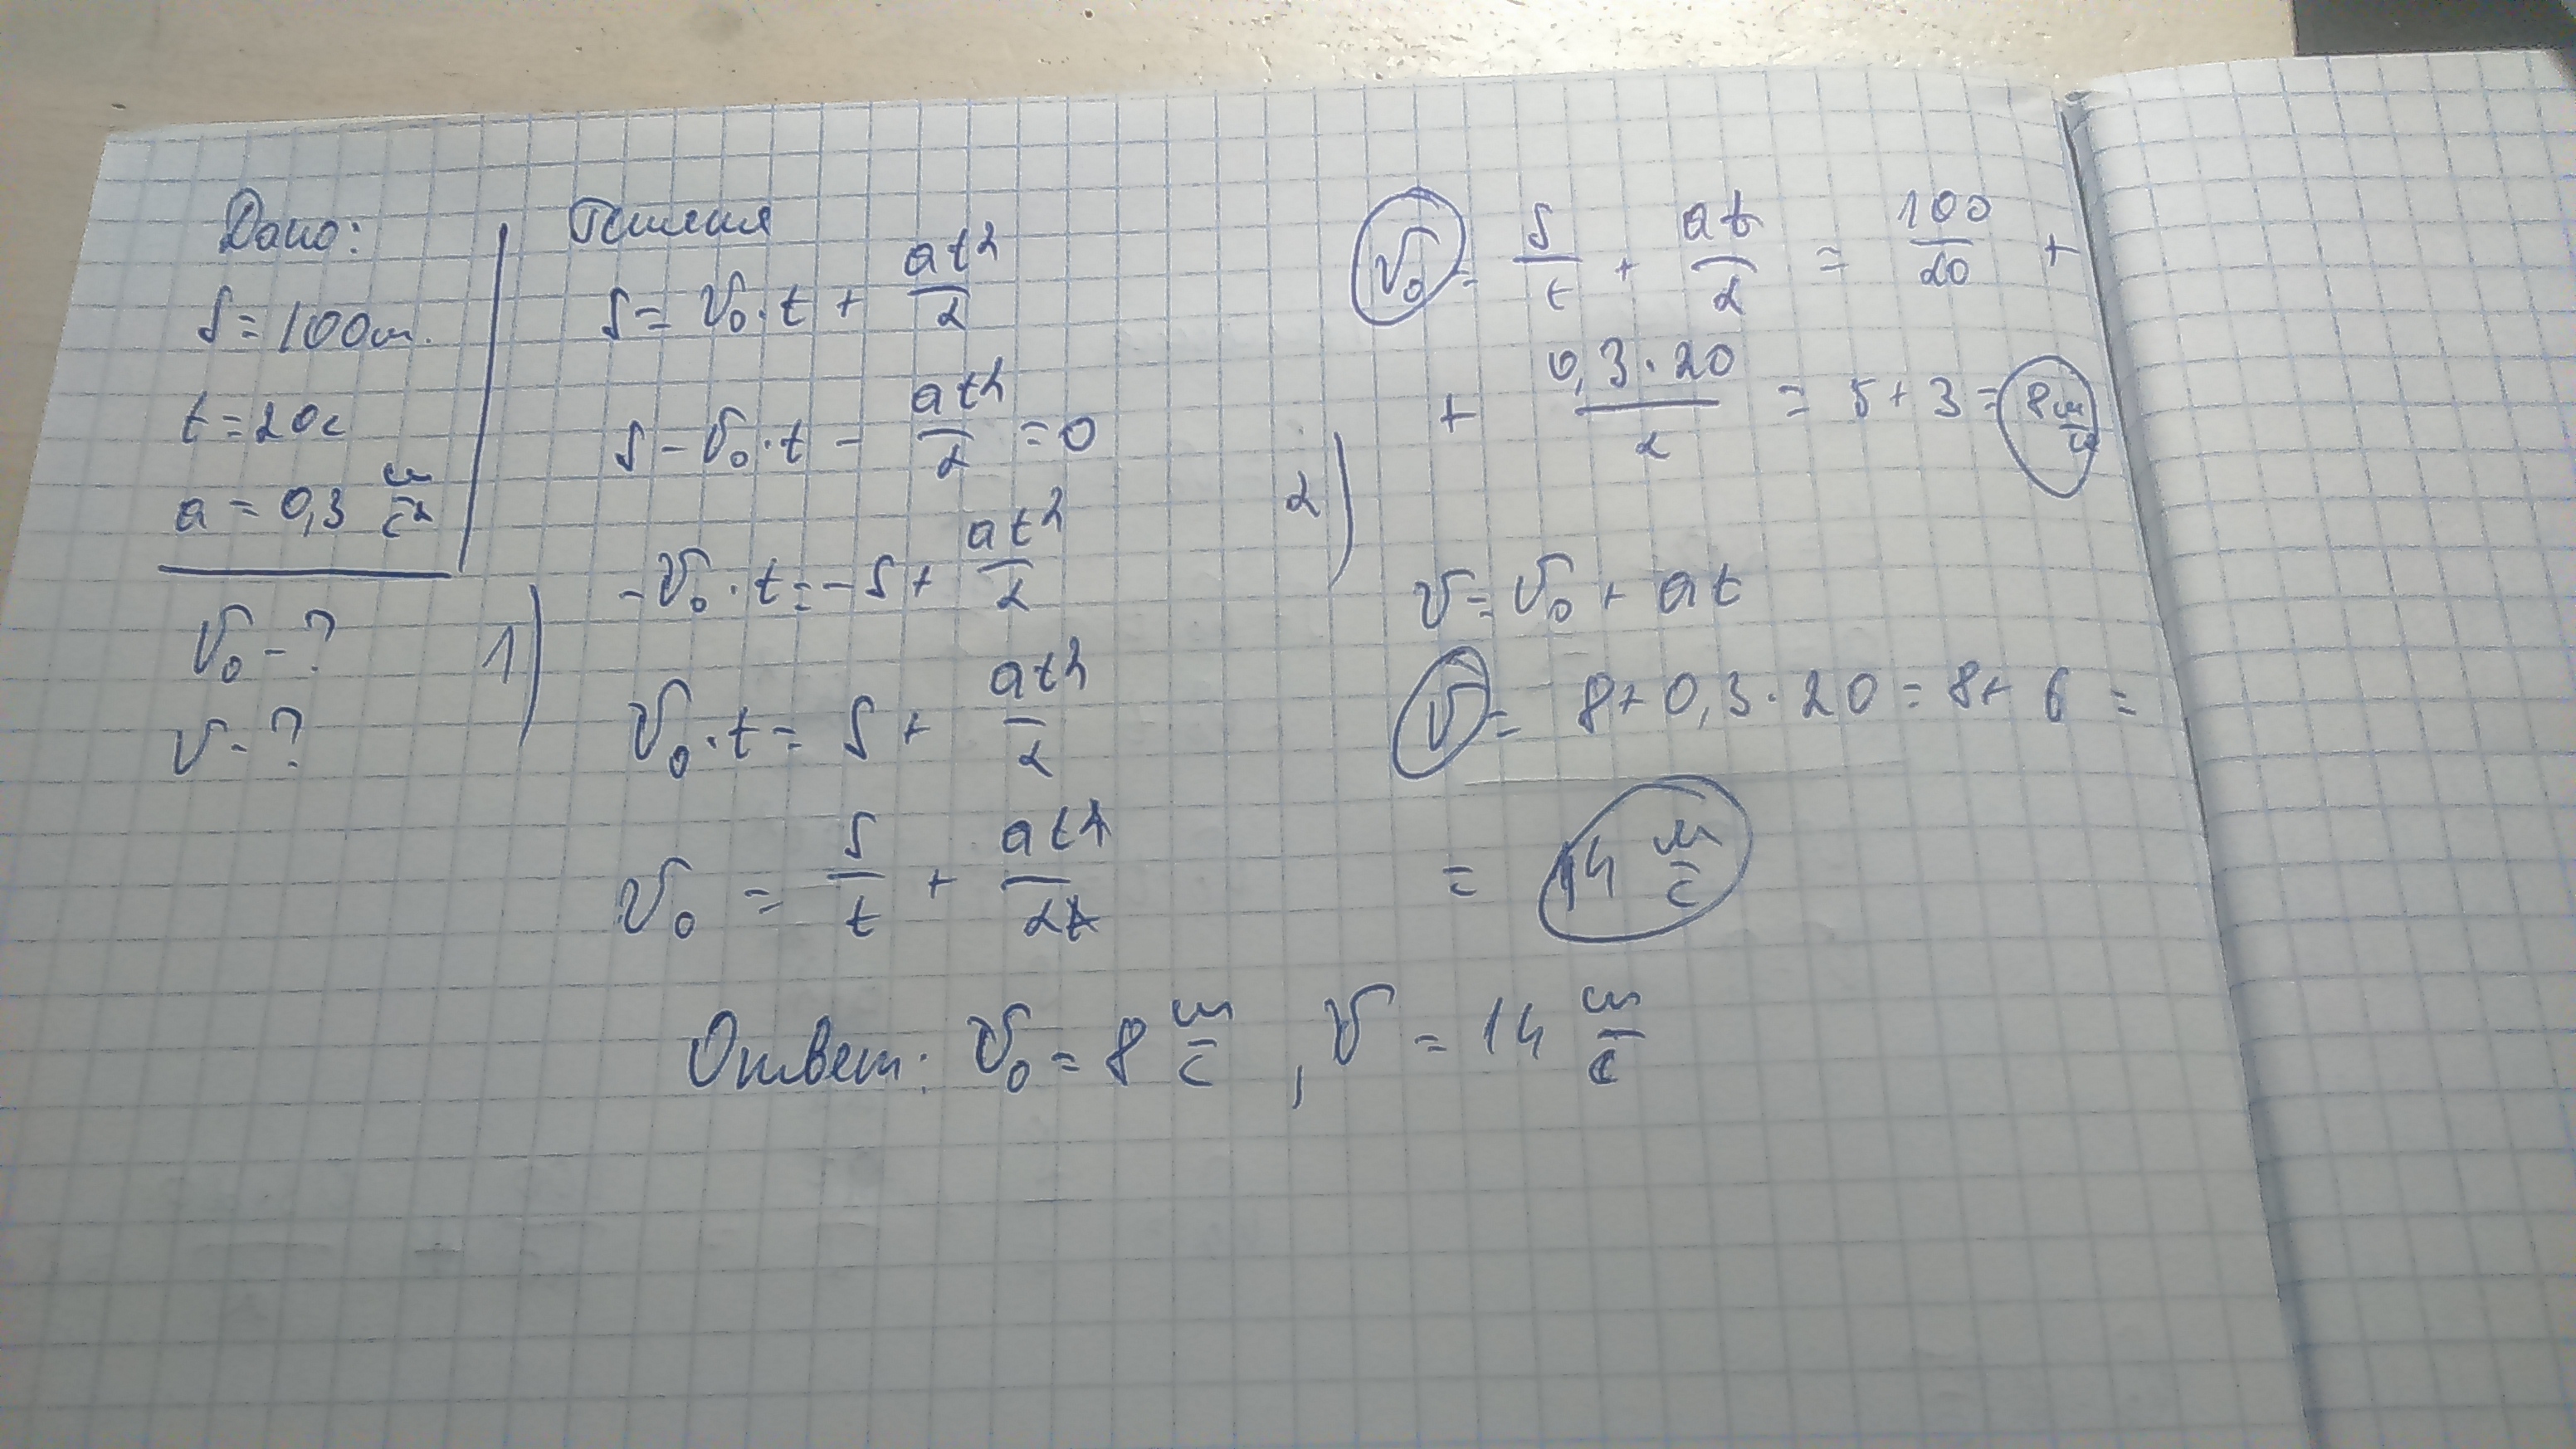 Дано:
S = 100м.
t = 20с
a = 0,3 м/с²
V₀ - ?
V - ?
Решения
S = V₀ · t + at²/2
S - V₀ · t - at²/2 = 0
1) -V₀ · t = -S + at²/2
V₀ · t = S + at²/2
V₀ = S/t + at²/2t
V₀ = S/t + at/2 = 100/20 +
+ 0,3 · 20/2 = 5 + 3 = 8 м/с
2)
V = V₀ + at
V = 8 + 0,3 · 20 = 8 + 6 =
= 14 м/с
Ответ: V₀ = 8 м/с, V = 14 м/с